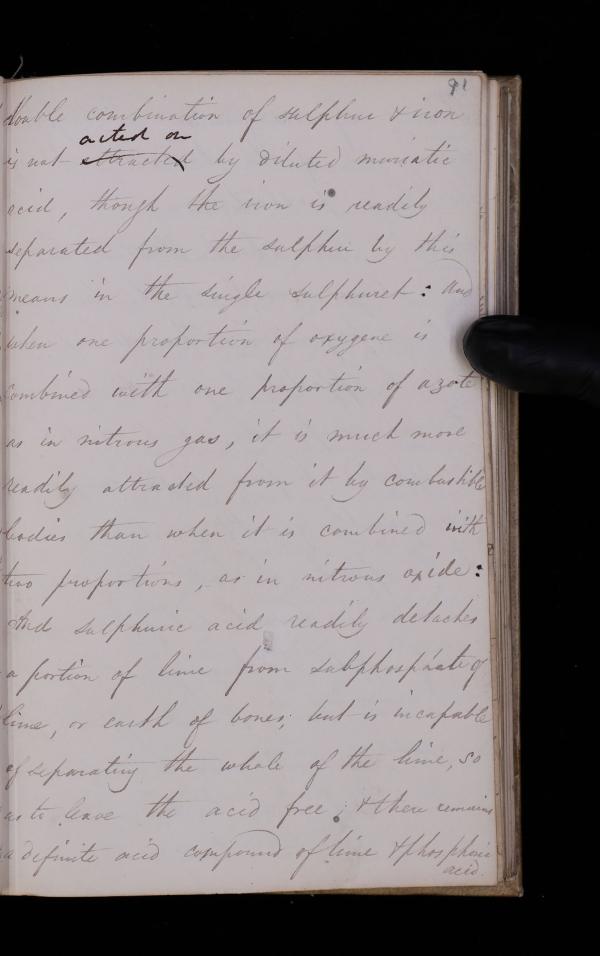 91
double combination of sulphur & iron
acted on
is not attracted by diluted muriatic
acid, though the iron is readily
separated from the sulphur by this
means in the single sulphuret: And
when one proportion of oxygene is
combined with one proportion of azote
as in nitrous gas, it is much more
readily attracted from it by combustible
bodies than when it is combined with
two proportions, as in nitrous oxide:
And sulphuric acid readily detaches
a portion of lime from subphosphate of
lime, or earth of bones; but is incapable
of separating the whole of the lime, so
as to leave the acid free; & there remains
a definite acid compound of lime & phosphoric
acid.